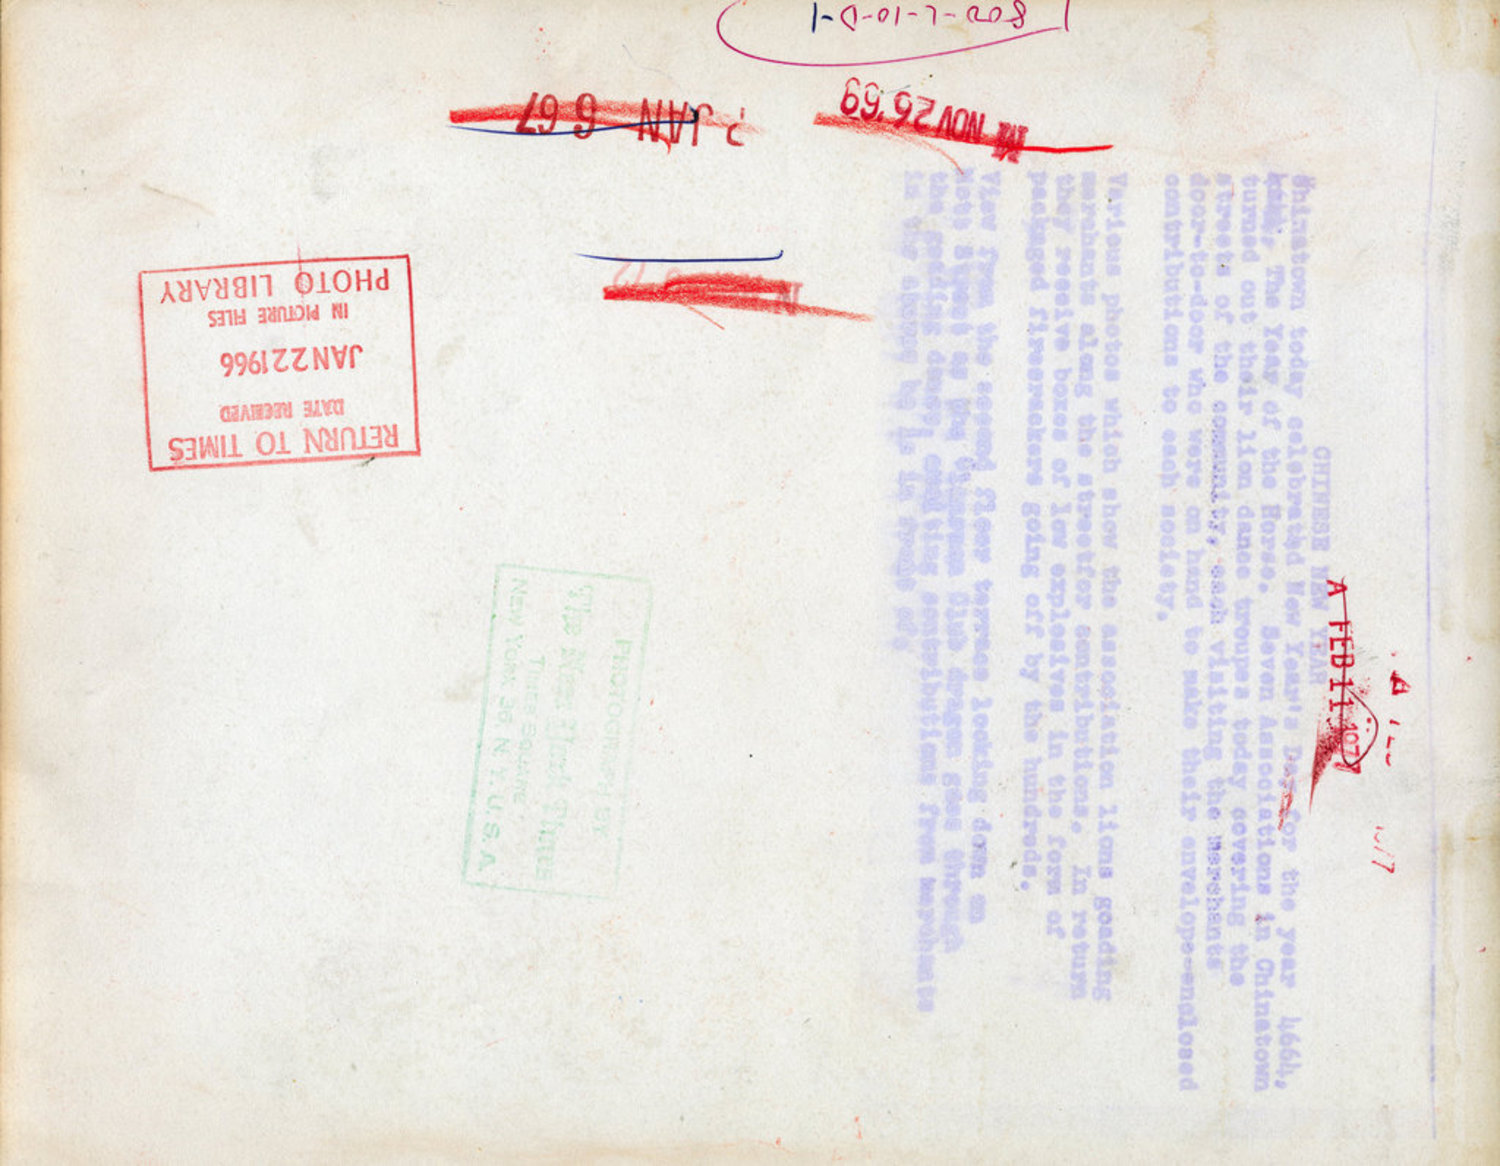 CHINESE NEW YEAR
Chinatown today celebrated New Year's Day for the year 4664,
The Year of the Horse. Seven Associations in Chinatown
turned out their lion dance troupes today covering the
streets of the community, each visiting the merchants
door-to-door who were on hand to make their envelope-enclosed
contributions to each society.
Various photos which show the association lions goading
merchants along the street for contributions. In return
they receive boxes of low explosives in the form of
packaged firecrackers going off by the hundreds.
View from the second floor terrace looking down on
Mott Street as the Club dragon goes through
the dance, contributions from merchants
in the shops he is in front of.
A FEB 11 1977
PHOTOGRAPH BY
The New York Times
TIMES SQUARE
NEW YORK 36 N.Y. U.S.A.
RETURN TO TIMES
DATE RECEIVED
JAN 22 1966
IN PICTURE FILES
PHOTO LIBRARY
JAN 6 67
M NOV 26 '69
802-L-10-D-1